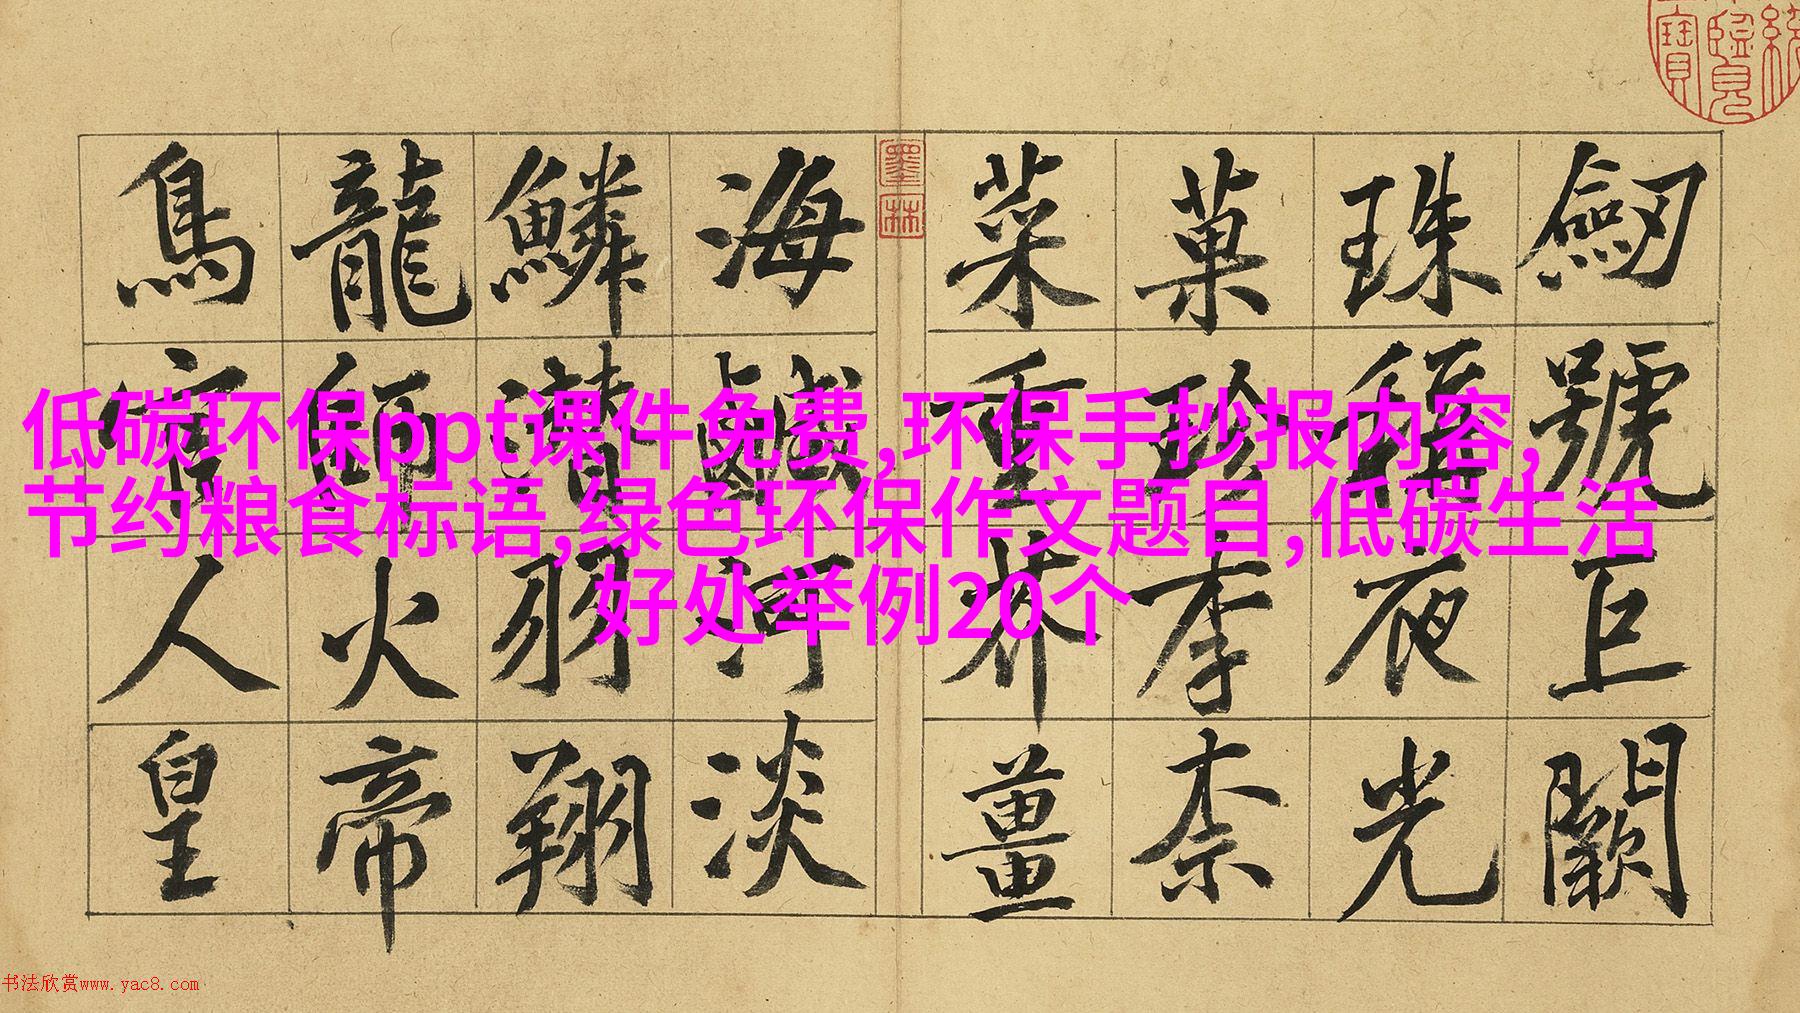 劒號巨闕
珠稱夜光
菓珍李柰
菜重芥薑
墨林
海鹹河淡
鱗潛羽翔
龍師火帝
鳥官人皇
低碳环保ppt课件免费,环保手抄报内容,
节约粮食标语,绿色环保作文题目,低碳生活
好处举例20个
书法欣赏www.yac8.com